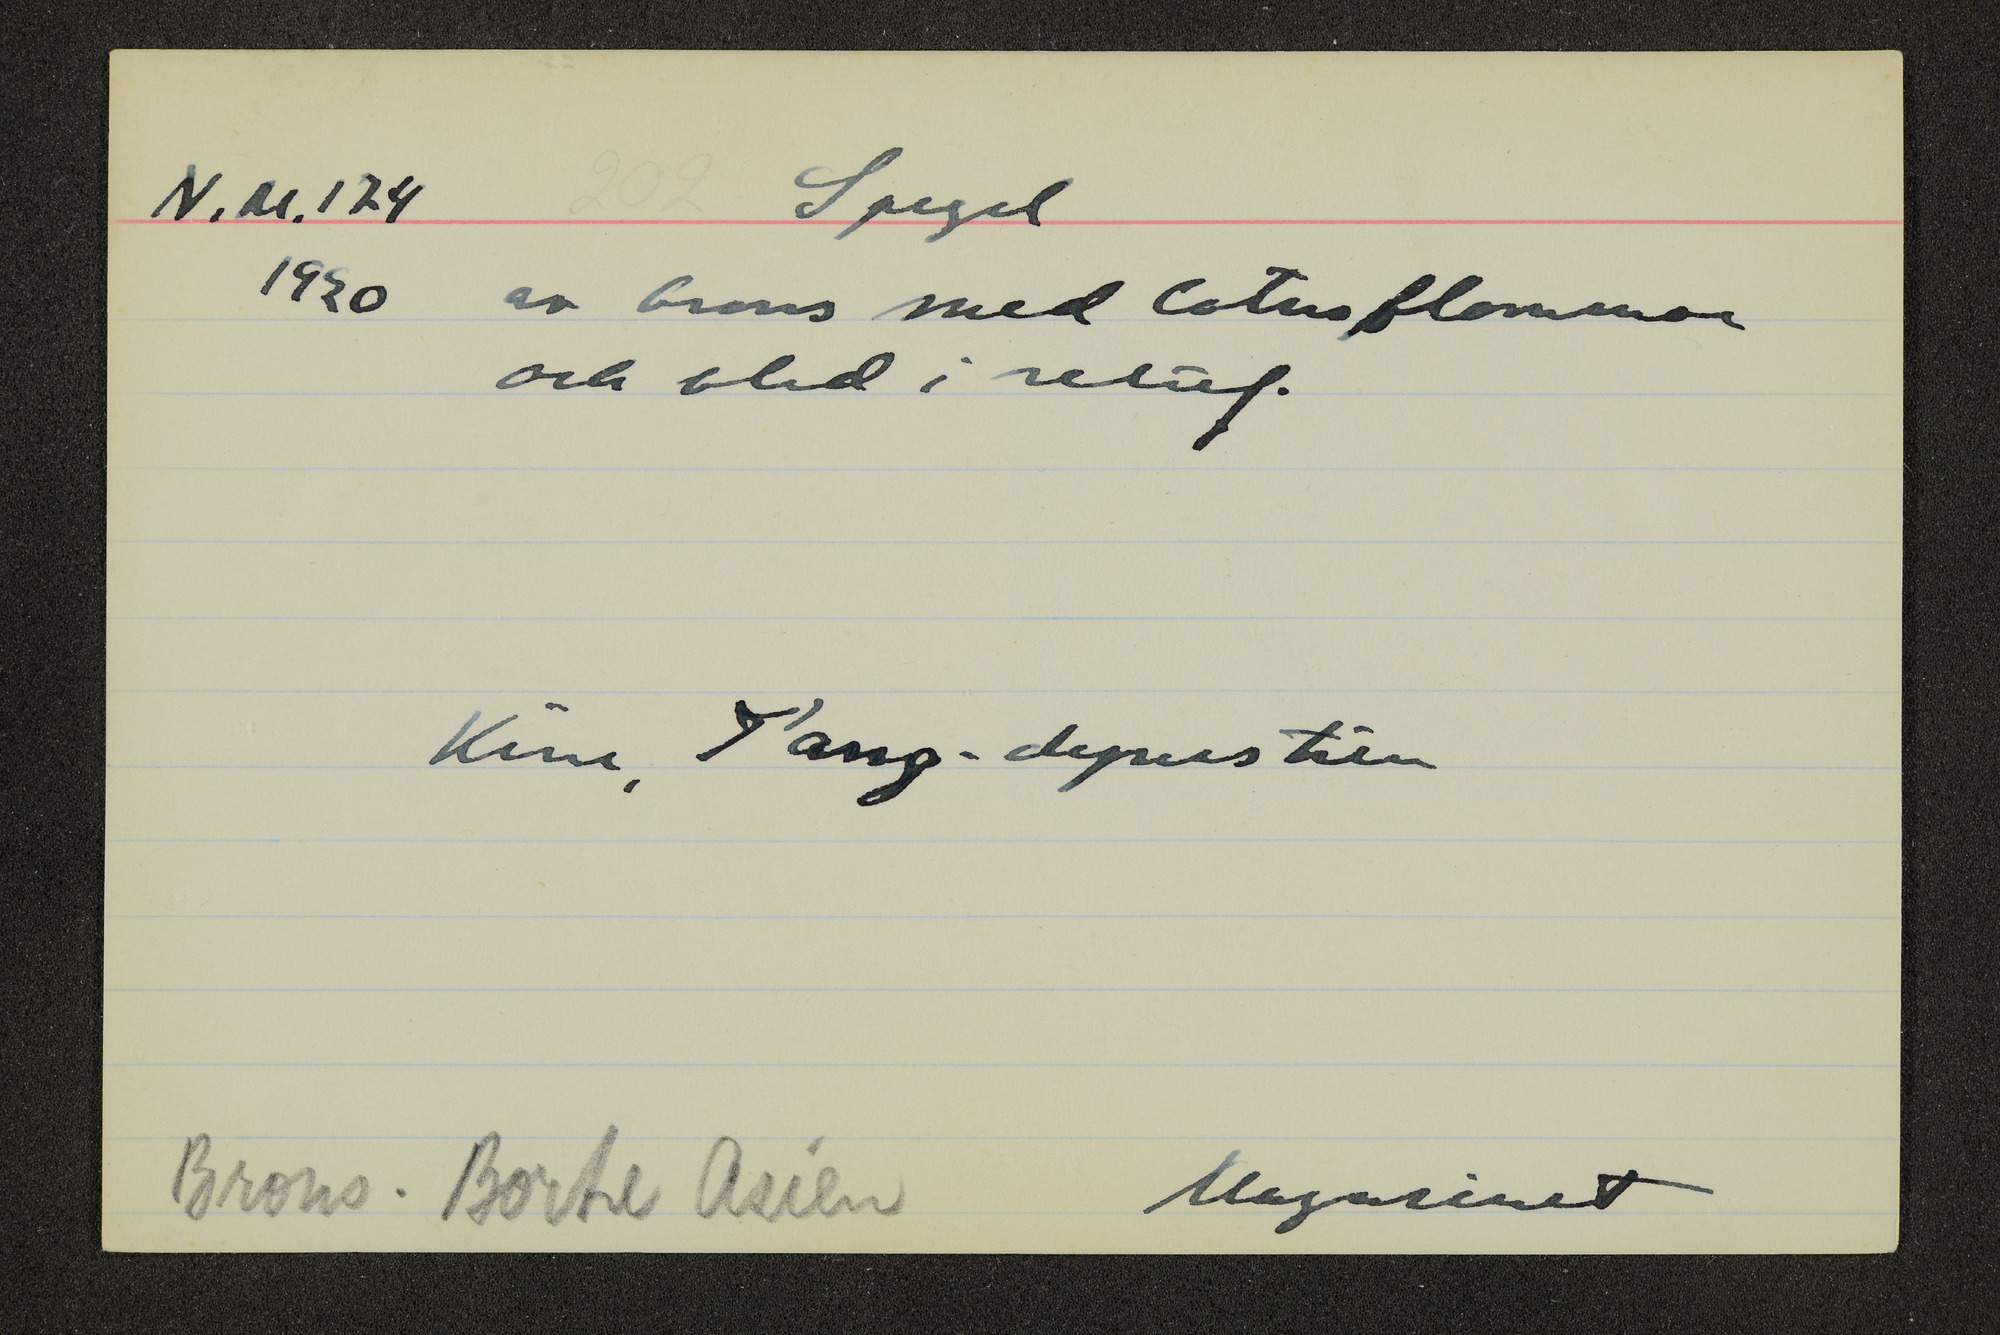 N.M.124 202 Spegel
1920 av brons med lotusblommor
och blad i relief.
Kina, T'ang-dynastien
Brons. Bortre Asien Magasinet